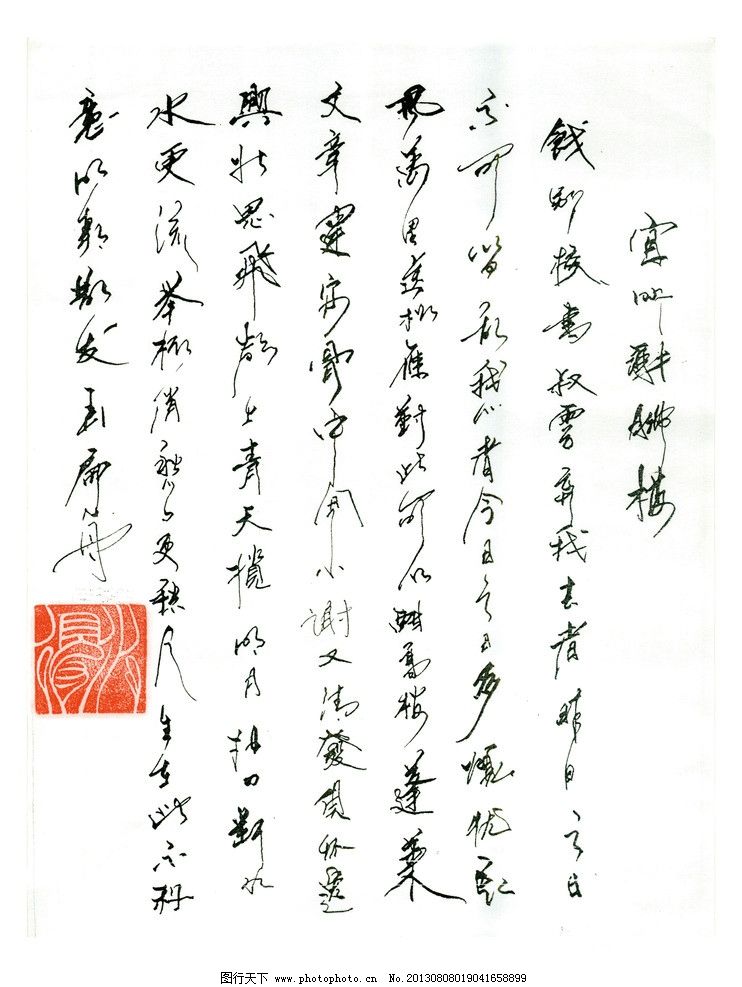 宣州謝朓樓
餞別校書叔雲弃我去者昨日之日
不可留乱我心者今日之日多煩忧長
風萬里送秋雁對此可以酣高樓蓬萊
文章建安骨中間小謝又清發俱怀逸
興壯思飛欲上青天攬明月抽刀斷水
水更流举杯消愁愁更愁人生在世不称
意明朝散发弄扁舟
图行天下 www.photophoto.cn No.20130808019041658899